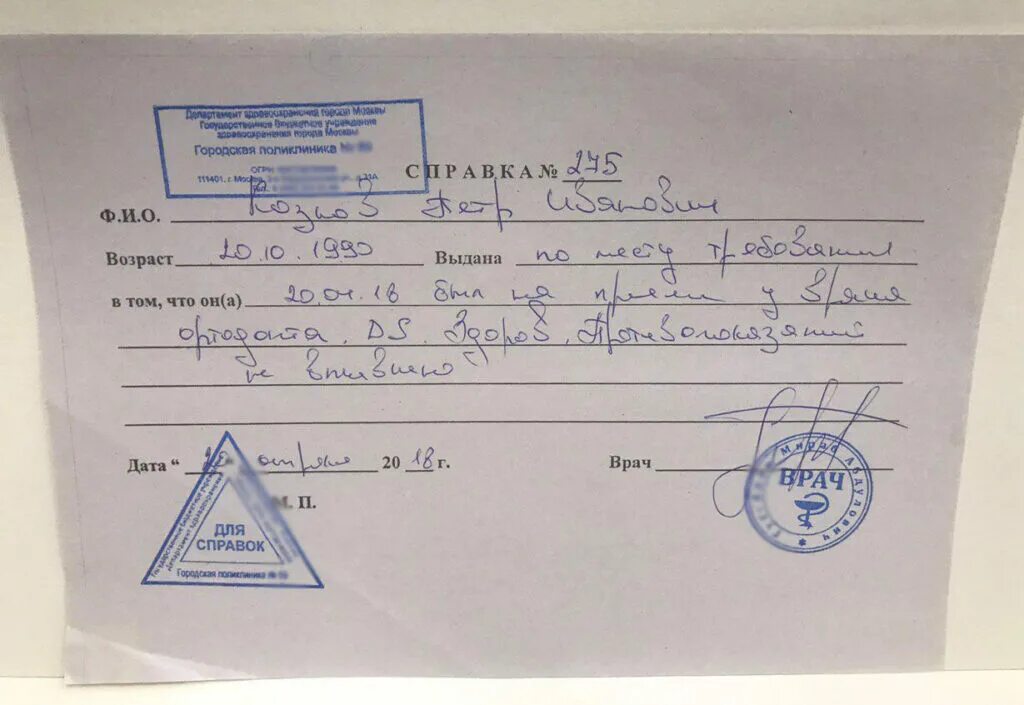 Департамент здравоохранения города Москвы
Государственное бюджетное учреждение
здравоохранения города Москвы
Городская поликлиника №
ОГРН
111401, г. Москва,
СПРАВКА № 275
Ф.И.О. Козлов Петр Иванович
Возраст 20.10.1990 Выдана по месту требования
в том, что он(а) 20.04.18 был на приеме у врача
ортодонта. DS. Здоров. Противопоказаний
не выявлено
Дата “ апреля 20 18 г.
Врач
М. П.
Государственное бюджетное учреждение
Департамент здравоохранения
ДЛЯ
СПРАВОК
Городская поликлиника №
Мирас Абдулович
ВРАЧ